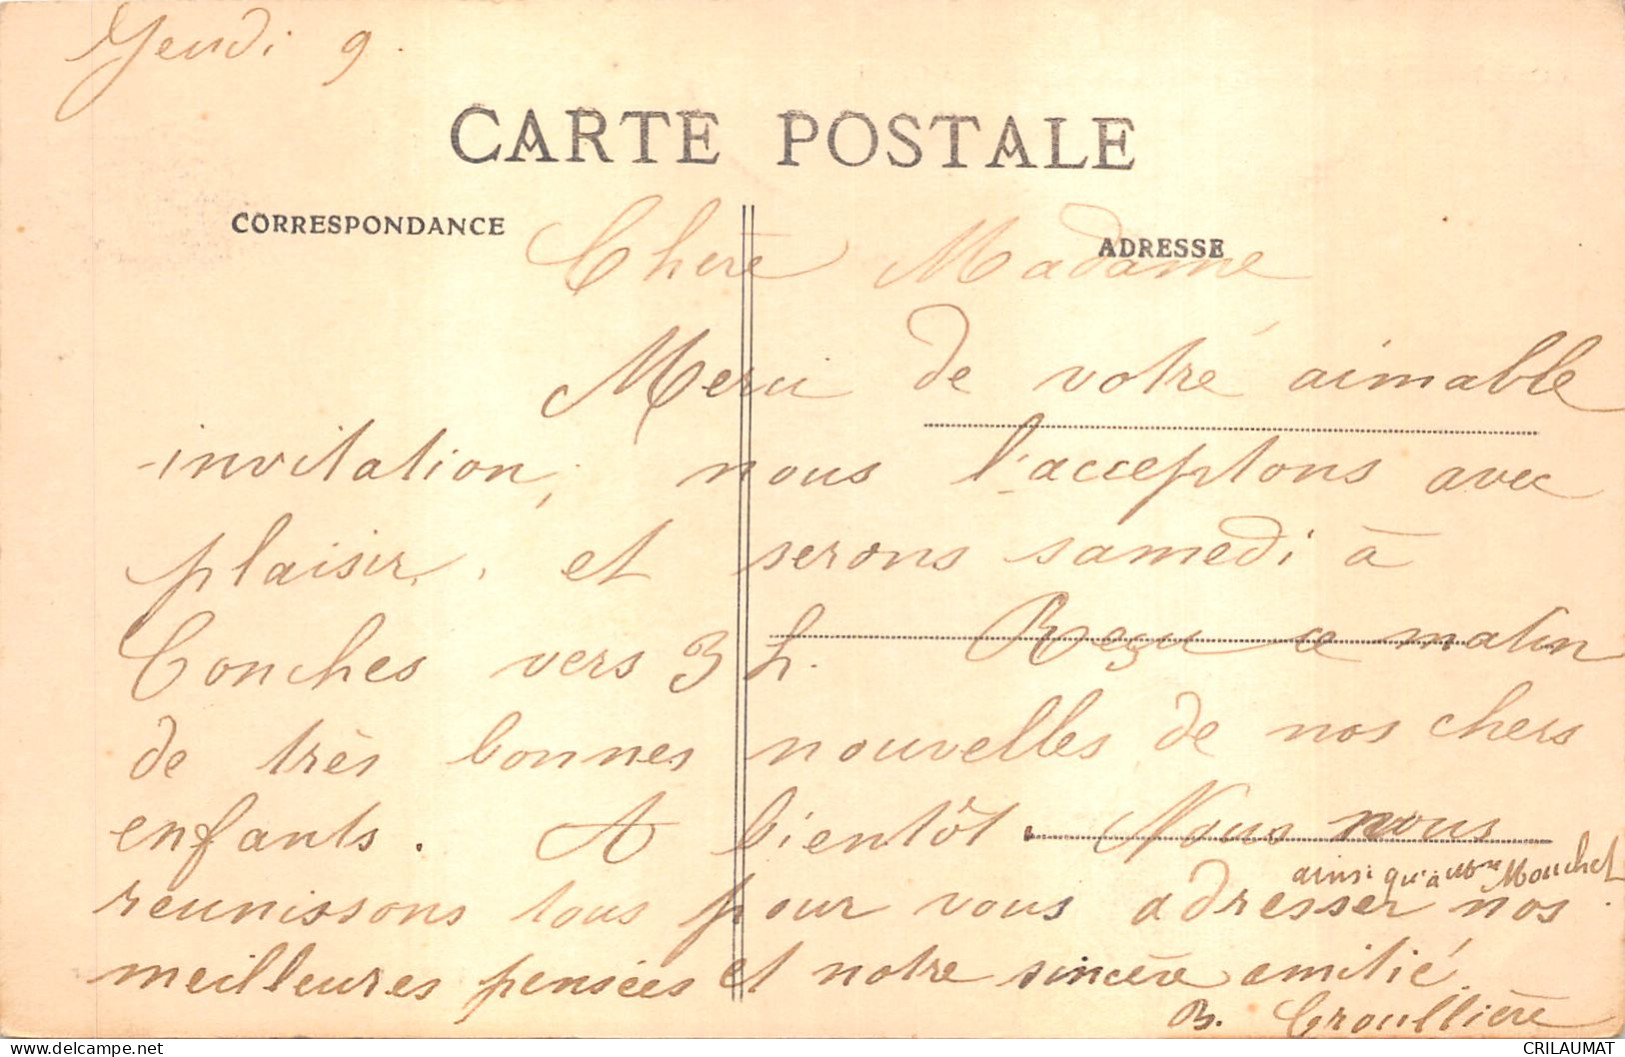 Jeudi 9.
CARTE POSTALE
CORRESPONDANCE
ADRESSE
Chère Madame
Merci de votre aimable
invitation, nous l'acceptons avec
plaisir, et serons samedi à
Conches vers 3 h. Reçu ce matin
de très bonnes nouvelles de nos chers
enfants. A bientôt. Nous nous
ainsi qu'à Mme Mouchel
réunissons tous pour vous adresser nos
meilleures pensées et notre sincère amitié.
B. Groullière
delcampe.net
CRILAUMAT